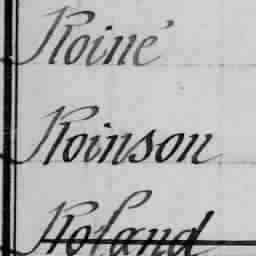 Roiné
Roinson
Roland